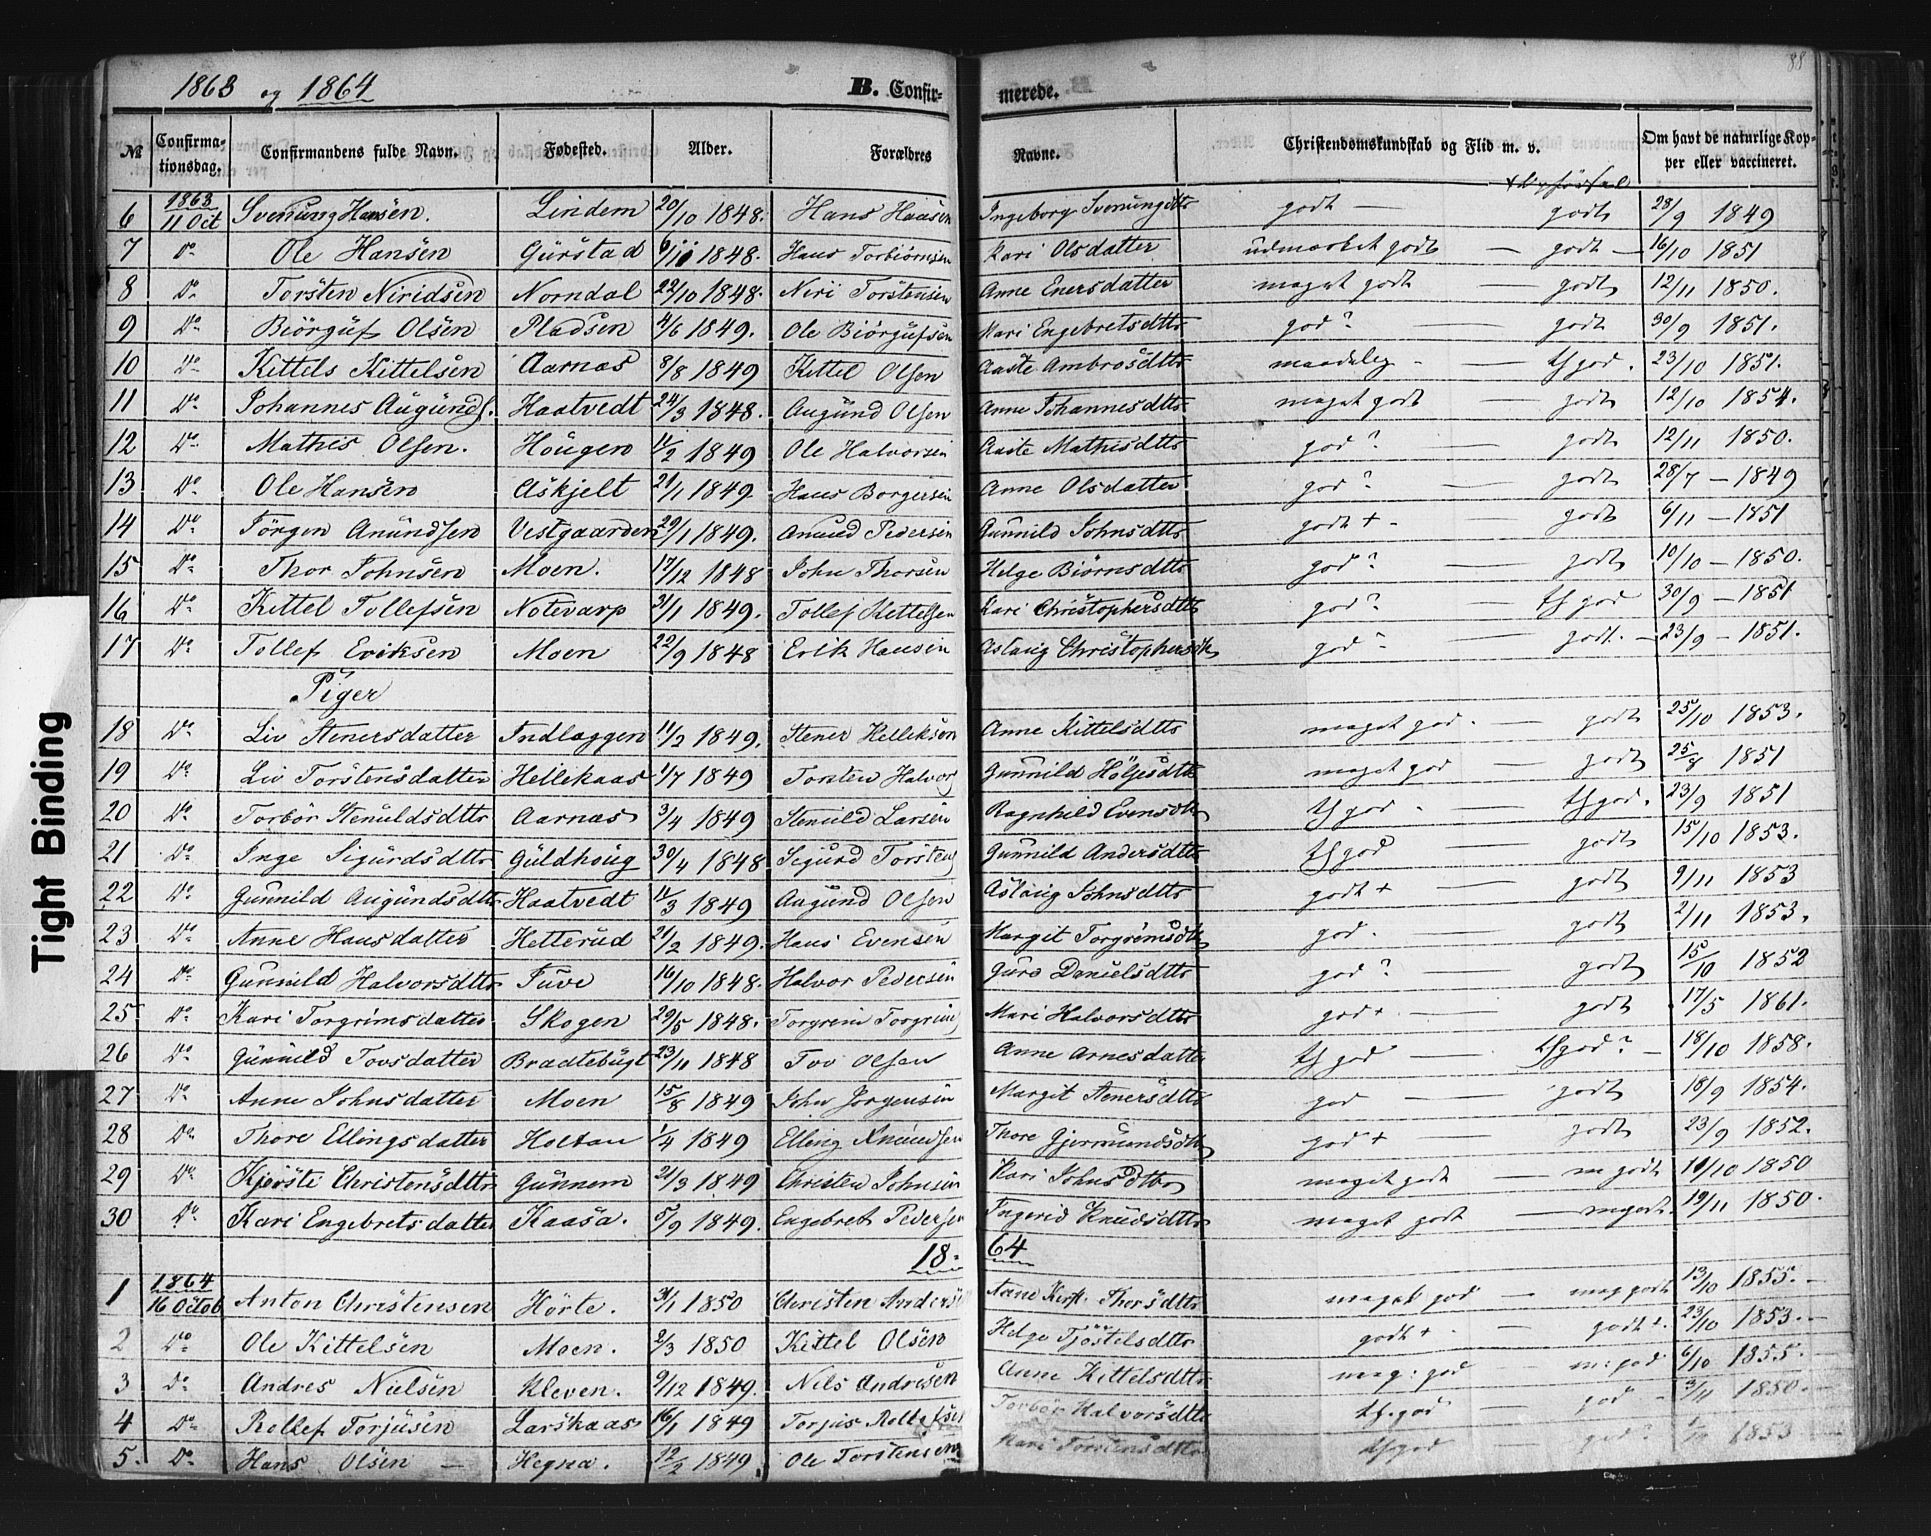 1863 og 1864 B. Confirmerede. 88
№ Confirmationsdag. Confirmandens fulde Navn. Fødested. Alder. Forældres Navne. Christendomskundskab og Flid m. v. Om havt de naturlige Kopper eller vaccineret.
6 1863 11 Oct Svenung Hansen. Lindem 20/10 1848. Hans Hansen Ingeborg Svenungdtto godt — godt 28/9 1849
7 Do Ole Hansen Gurstad 6/11 1848. Hans Torbiörnsen Kari Olsdatter udmærket godt — godt — 16/10 1851
8 Do Torsten Niridsen Norndal 22/10 1848. Niri Torstensen Anne Enersdatter maget godt — godt 12/11 1850.
9 Do Biörguf Olsen Pladsen 4/6 1849. Ole Biörgufsen Mari Engebretsdtto god? — godt 30/9 1851.
10 Do Kittels Kittelsen Aarnæs 8/8 1849 Kittel Olsen Aaste Ambrosdtto maadelig - tf god. 23/10 1851.
11 Do Johannes Augunds. Haatvedt 24/3 1848. Augund Olsen Anne Johannesdtto maget godt — godt 12/10 1854.
12 Do Mathis Olsen. Hougen 14/2 1849 Ole Halvorsen Aaste Mathisdtto god? — godt 12/11 1850.
13 Do Ole Hansen Askjelt 21/1 1849 Hans Borgersen Anne Olsdatter god? — godt 28/7 — 1849
14 Do Jörgen Anundsen Vestgaarden 29/1 1849. Anund Pedersen Gunnild Johnsdtto godt + - godt 6/11 — 1851
15 Do Thor Johnsen Moen. 17/12 1848 John Thorsen Helge Biörnsdtto god? godt 10/10 — 1850.
16 Do Kittel Tollefsen Notevarp 31/1 1849. Tollef Kittelsen Kari Christophersdtto god? — tf god 30/9 — 1851
17 Do Tollef Eriksen Moen 22/9 1848 Erik Hansen Aslaug Christophersdtt god — godt. — 23/9 — 1851.
Piger
18 Do Liv Stenersdatter Indlæggen 11/2 1849. Stener Helleksen Anne Kittelsdtto maget god. — godt 25/10 1853.
19 Do Liv Torstensdatter Hellikaas 1/7 1849 Torsten Halvor Gunnild Höljesdtt maget god — godt 25/8 1851
20 Do Torbör Stenuldsdtto Aarnæs 3/4 1849 Stenuld Larsen Ragnhild Evensdtt tf god - — tf god. 23/9 1851
21 Do Inge Sigurdsdtto Guldhoug 30/4 1848 Sigurd Torstens Gunnild Andersdtto tf god — godt 15/10 1853.
22 Do Gunnild Augundsdtto Haatvedt 11/3 1849 Augund Olsen Aslaug Johnsdtto godt + godt 9/11 1853
23 Do Anne Hansdatter Hetterud 21/2 1849. Hans Evensen Margit Torgrimsdtt god. godt 2/11 1853.
24 Do Gunnild Halvorsdtto Tuve 16/10 1848. Halvor Pedersen Guro Danielsdtto god? — godt 15/10 1852
25 Do Kari Torgrimsdatter Skogen 29/5 1848. Torgrim Torgrims Mari Halvorsdtto god + - — godt 17/5 1861.
26 Do Gunnild Tovsdatter Bradtebugt 23/11 1848 Tov Olsen Anne Arnesdatter tf god — tf god? — 18/10 1858.
27 Do Anne Johnsdatter Moen 15/8 1849 John Jorgensen Margit Stenersdtto god — godt 18/9 1854.
28 Do Thore Ellingsdatter Holtan 1/4 1849 Elling Knudsen Thore Gjermundsdtt god + — godt 23/9 1852.
29 Do Kjersti Christensdtto Gunnem 21/3 1849 Christen Johnsen Kari Johnsdtto maget godt — m godt 10/10 1850
30 Do Kari Engebretsdatter Kaasa. 5/9 1849. Engebret Pedersen Ingerid Knudsdtto maget godt — m godt. 19/11 1850.
18-64
1 1864 16 Octob Anton Christensen Hörte. 31/1 1850 Christen Anders Anne Kirst. Thorsdtto maget god — mag godt 13/10 1855. —
2 Do Ole Kittelsen Moen. 2/3 1850 Kittel Olsen Helge Tjöstelsdtto godt + - — godt + 23/10 1853. —
3 Do Andres Nielsen Kleven. 9/12 1849. Nils Andresen Anne Kittelsdtto mag: god — m: god 6/10 1855.
4 Do Rollef Torjusen Larskaas 16/1 1849 Torjus Rollefsen Torbör Halvorsdtto tf: god god 3/11 1850.
5. Do Hans Olsen — Hegna. 12/2 1849 Ole Torstensen Kari Torstensdtto tf god god 1853
Tight Binding